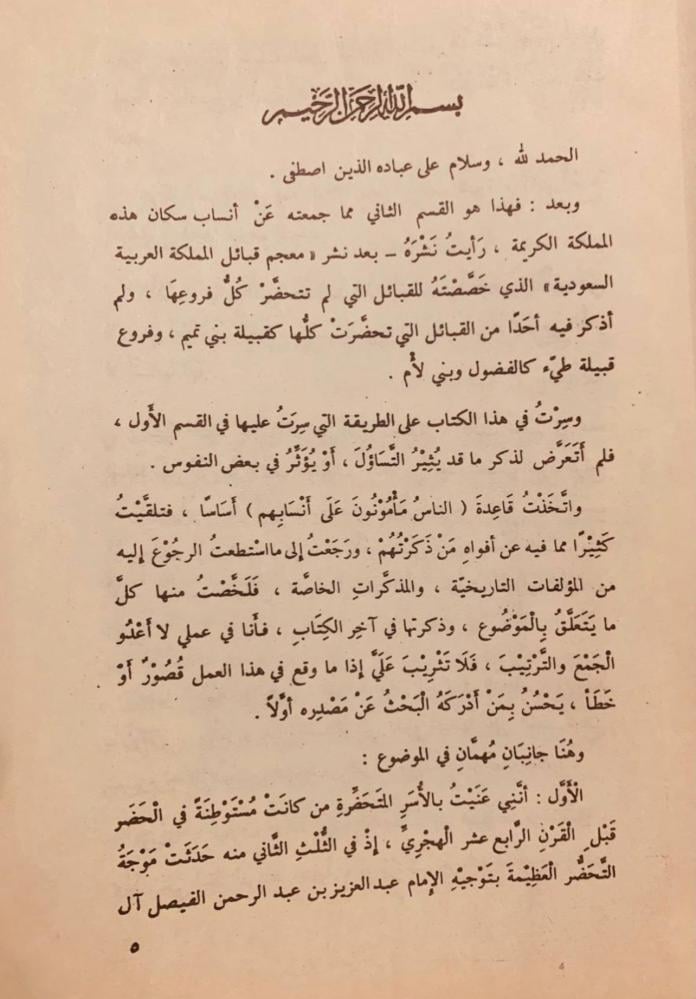 بسم الله الرحمن الرحيم
الحمد لله ، وسلام على عباده الذين اصطفى .
وبعد : فهذا هو القسم الثاني مما جمعته عَنْ أنساب سكان هذه
المملكة الكريمة ، رَأيتُ نَشْرَهُ ــ بعد نشر « معجم قبائل المملكة العربية
السعودية » الذي خَصَّصْتَهُ للقبائل التي لم تتحضَّرْ كُلُّ فروعِهَا ، ولم
أذكر فيه أحَدًا من القبائل التي تحضَّرَتْ كلُّها كقبيلة بني تميم ، وفروع
قبيلة طيّء كالفضول وبني لأْم .
وسِرْتُ في هذا الكتاب على الطريقة التي سِرَتُ عليها في القسم الأَول ،
فلم أَتَعَرَّض لذكر ما قد يُثِيْرُ التَّساؤُلَ ، أَوْ يُؤَثِّرُ في بعض النفوس .
واتَّخَذْتُ قَاعِدةَ ( الناسُ مَأْمُوْنُونَ عَلَى أَنْسَابِهم ) أَسَاسًا ، فتلقَّيْتُ
كَثِيْرًا مما فيه عن أفواهِ مَنْ ذَكَرْتُهُمْ ، ورَجَعْتُ إلى ما استطعتُ الرجُوْعَ إليه
من المؤلفات التاريخيّة ، والمذكَّراتِ الخاصَّة ، فَلَخَّصْتُ منها كلَّ
ما يَتَعَلَّقُ بِالْمَوْضُوع ، وذكرتها في آخِر الكِتَابِ ، فَأَنا في عملي لا أَعْدُو
الْجَمْعَ والتَّرْتِيْبَ ، فَلَا تَثْرِيْبَ عَلَيَّ إذا ما وقع في هذا العمل قُصُوْرٌ أَوْ
خَطَأْ ، يَحْسُنُ بِمَنْ أَدْرَكَهُ الْبَحْثُ عَنْ مَصْدِره أوَّلاً .
وهُنَا جانِبَانِ مُهمَّانِ في الموضوع :
الْأَوَّل : أنَّنِي عَنَيْتُ بالأُسَرِ المتَحَضِّرةِ من كانَتْ مُسْتَوْطِنَةً في الْحَضَر
قَبْلِ الْقَرْنِ الرَّابع عشر الْهِجْرِيِّ ، إذْ في الثُّلْثِ الثَّاني منه حَدَثَتْ مَوْجَةُ
التَّحَضُّر الْعَظِيْمَةَ بتَوْجيْهِ الإمام عبد العزيز بن عبد الرحمن الفيصل آل
٥